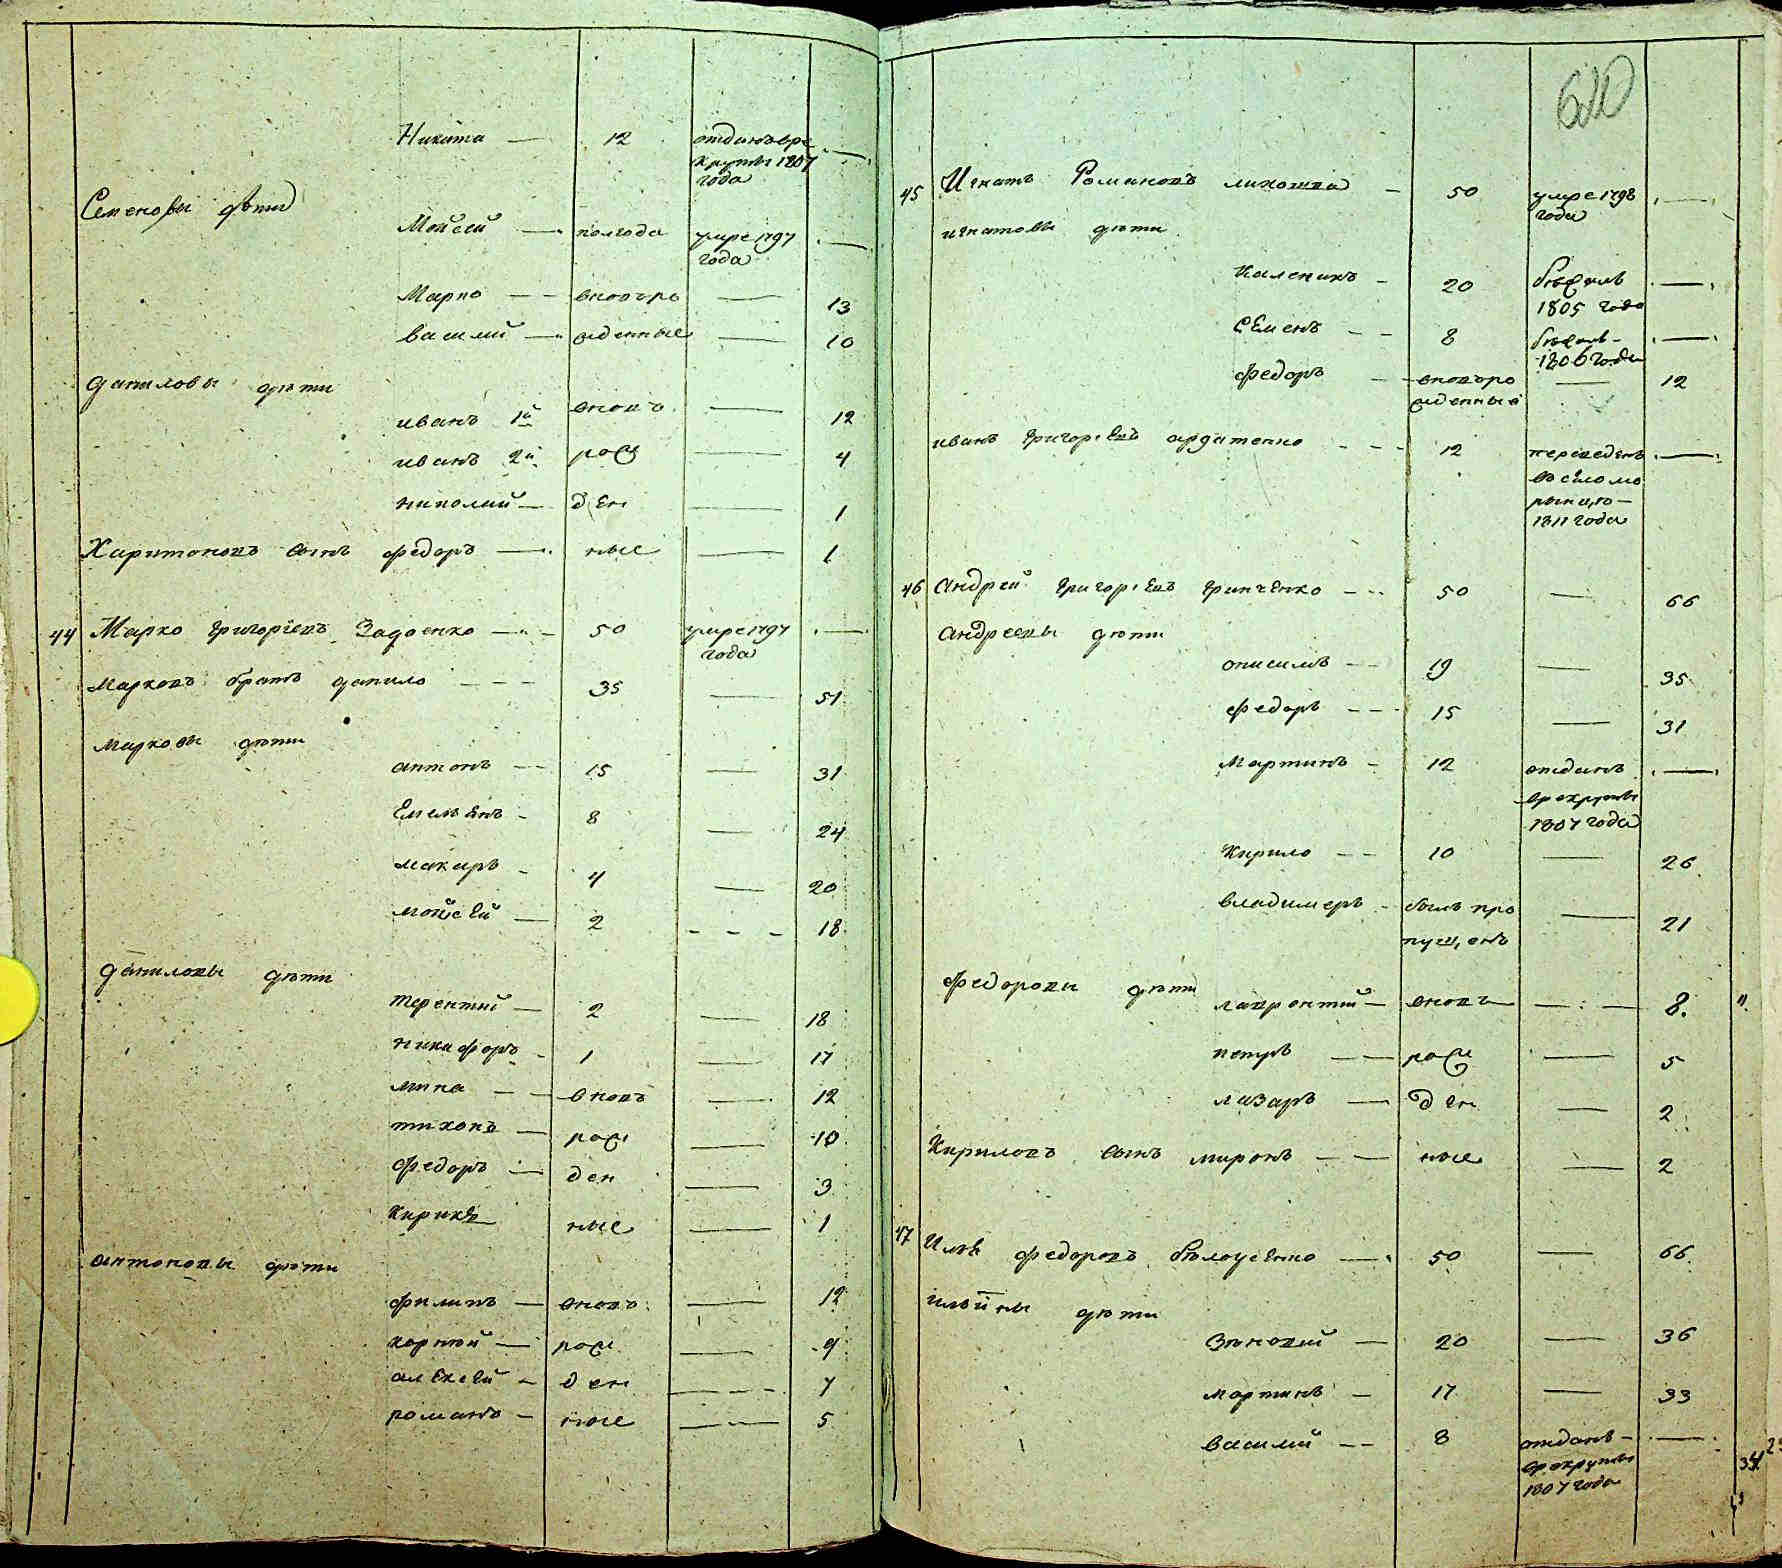 Никита — 12 отданъ в ре
круты 1807
года
Семеновы дѣти
Мойсей — полгода умре 1797
года
Марко — вновьро 13
василий — жденные 10
даниловы дѣти
иванъ 1й вновь — 12
иванъ 2й рож — 4
николай — ден — 1
Харитоновъ сынъ федоръ — ные — 1
44 Марко григорьевъ Задоенко — 50 умре 1797
года
Марковъ братъ данило — 35 — 51
Марковы дѣти
антонъ — 15 — 31
Емельянъ — 8 — 24
макаръ — 4 — 20
мойсей — 2 — 18
даниловы дѣти
терентий — 2 — 18
никифоръ — 1 — 17
мина — вновь — 12
тихонъ — рож — 10
федоръ — ден — 3
кирикъ ные — 1
антоновы дѣти
филипъ — вновь — 12
корнѣй — рож — 9
алексей — ден — 7
романъ — ные — 5
620
45 Игнатъ Романовъ — 50 умре 1798
года
игнатовы дѣти
каленикъ — 20 бѣжалъ
1805 года
семенъ — 8 бѣжалъ
1806 года
федоръ — вновьро — 12
жденные
иванъ григорьевъ — 12 переведенъ
1811 года
46 андрей григорьевъ гринченко — 50 — 66
андреевы дѣти
онисимъ — 19 — 35
федоръ — 15 — 31
мартинъ — 12 отданъ
в рекруты
1807 года
кирило — 10 — 26
владимеръ — былъ про — 21
пущенъ
федоровы дѣти
лаврентий — вновь — 8.
петръ — рож — 5
лазарь — ден — 2
кириловъ сынъ миронъ — ные — 2
47 Илья федоровъ бѣлоусенко — 50 — 66
ильины дѣти
Зѣновий — 20 — 36
мартинъ — 17 — 33
василий — 8 отданъ
в рекруты
1807 года